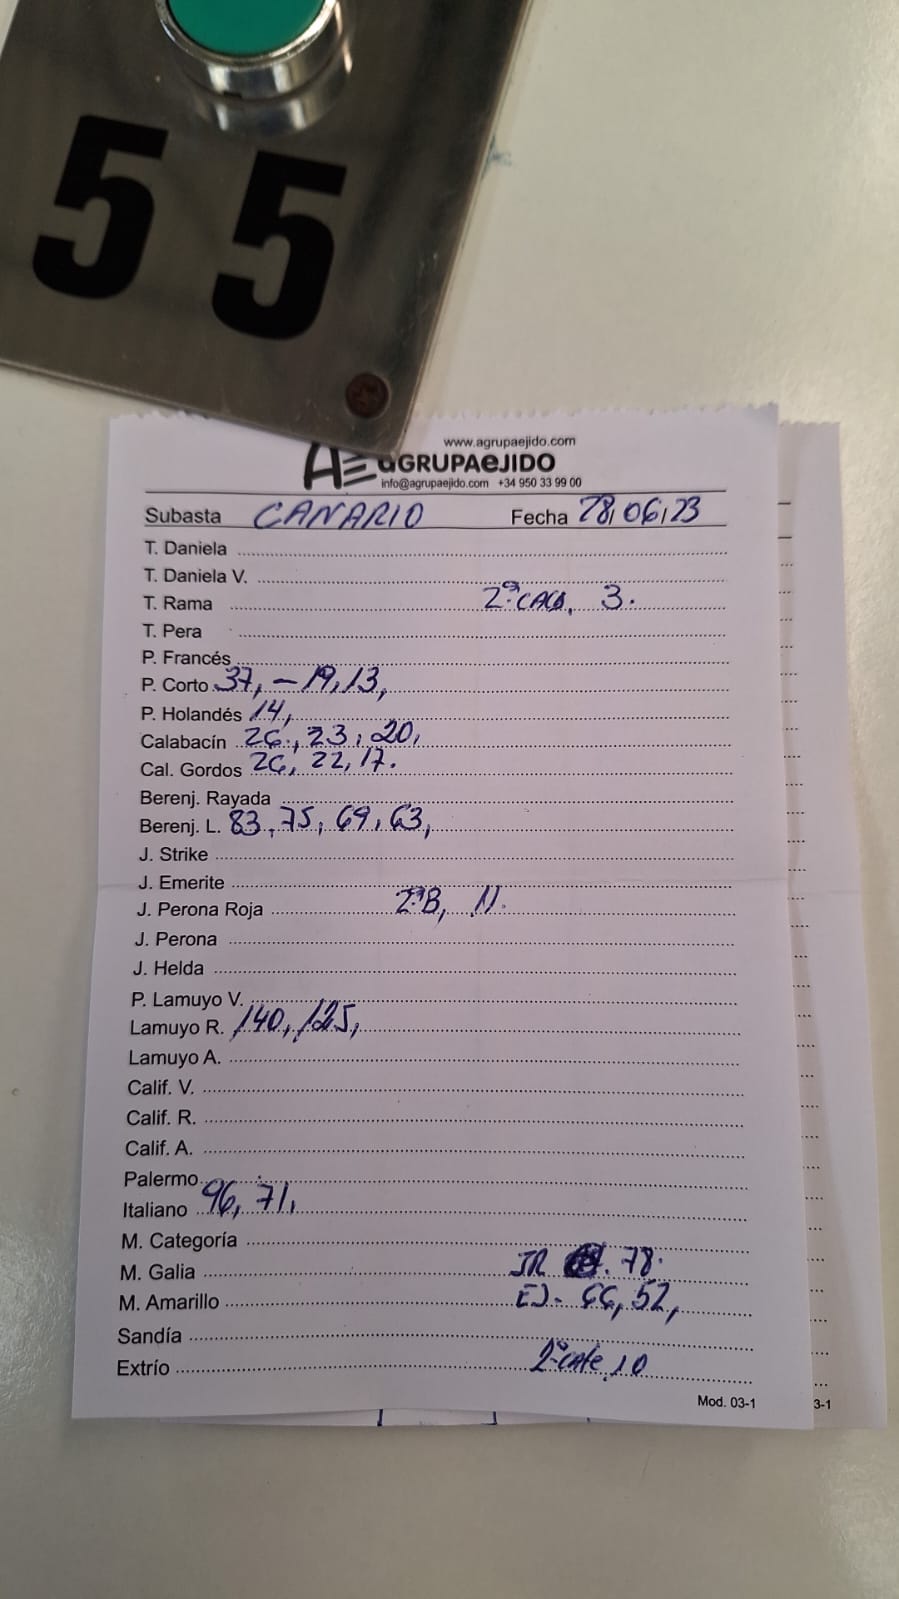 55
www.agrupaejido.com
AE aGRUPAeJIDO
info@agrupaejido.com +34 950 33 99 00
Subasta CANARIO Fecha 28/06/23
T. Daniela
T. Daniela V.
T. Rama 2ª CACB, 3.
T. Pera
P. Francés
P. Corto 37, - 19, 13,
P. Holandés 14,
Calabacín 26, 23, 20,
Cal. Gordos 26, 22, 17.
Berenj. Rayada
Berenj. L. 83, 75, 69, 63,
J. Strike
J. Emerite
J. Perona Roja 2ªB, 11.
J. Perona
J. Helda
P. Lamuyo V.
Lamuyo R. 140, 125,
Lamuyo A.
Calif. V.
Calif. R.
Calif. A.
Palermo
Italiano 96, 71,
M. Categoría
M. Galia JR 78.
M. Amarillo EJ- 66, 52,
Sandía
Extrío 2ª cate, 10
Mod. 03-1
3-1